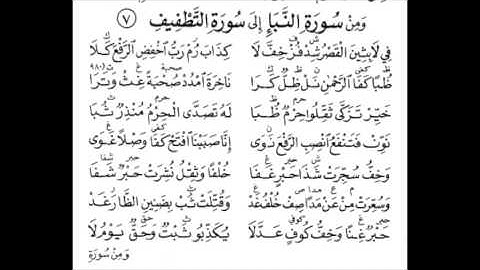 وَمِنْ سُورَةِ النَّبَإِ إِلَى سُورَةِ التَّطْفِيفِ ٧
فِي لَابِثِينَ الْقَصْرُ شِدْ فُزْ خِفَّ لَا كِذَابَ رُمْ رَبُّ اخْفِضِ الرَّفْعَ كَلَا
ظُبًا كَفَا الرَّحْمَنِ نَلْ ظِلٌّ كَرَا نَاخِرَةً امْدُدْ صُحْبَةٌ غِثْ وَتَرَا (٩٨٠)
خَيِّرْ تَزَكَّى ثَقِّلُوا حِرْمٌ ظُبَا لَهُ تَصَدَّى الْحِرْمُ مُنْذِرٌ ثُبَا
نَوِّنْ فَتَنْفَعُ انْصِبِ الرَّفْعَ نَوَى إِنَّا صَبَبْنَا افْتَحْ كَفَا وَصْلًا غَوَى
وَخِفُّ سُجِّرَتْ شَذَا حَبْرٌ غَفَا خُلْفًا وَثِقْلُ نُشِرَتْ حَبْرٌ شَفَا
وَسُعِّرَتْ مِنْ عَنْ مَدًا صِفْ خُلْفُ غَدْ وَقُتِّلَتْ ثُبْ بِضَنِينِ الظَّا رَغَدْ
حَبْرٌ غِنًا وَخِفُّ كُوفٍ عَدَلَا يُكَذِّبُو ثَبْتٌ وَحَقٌّ يَوْمُ لَا
وَمِنْ سُورَةِ